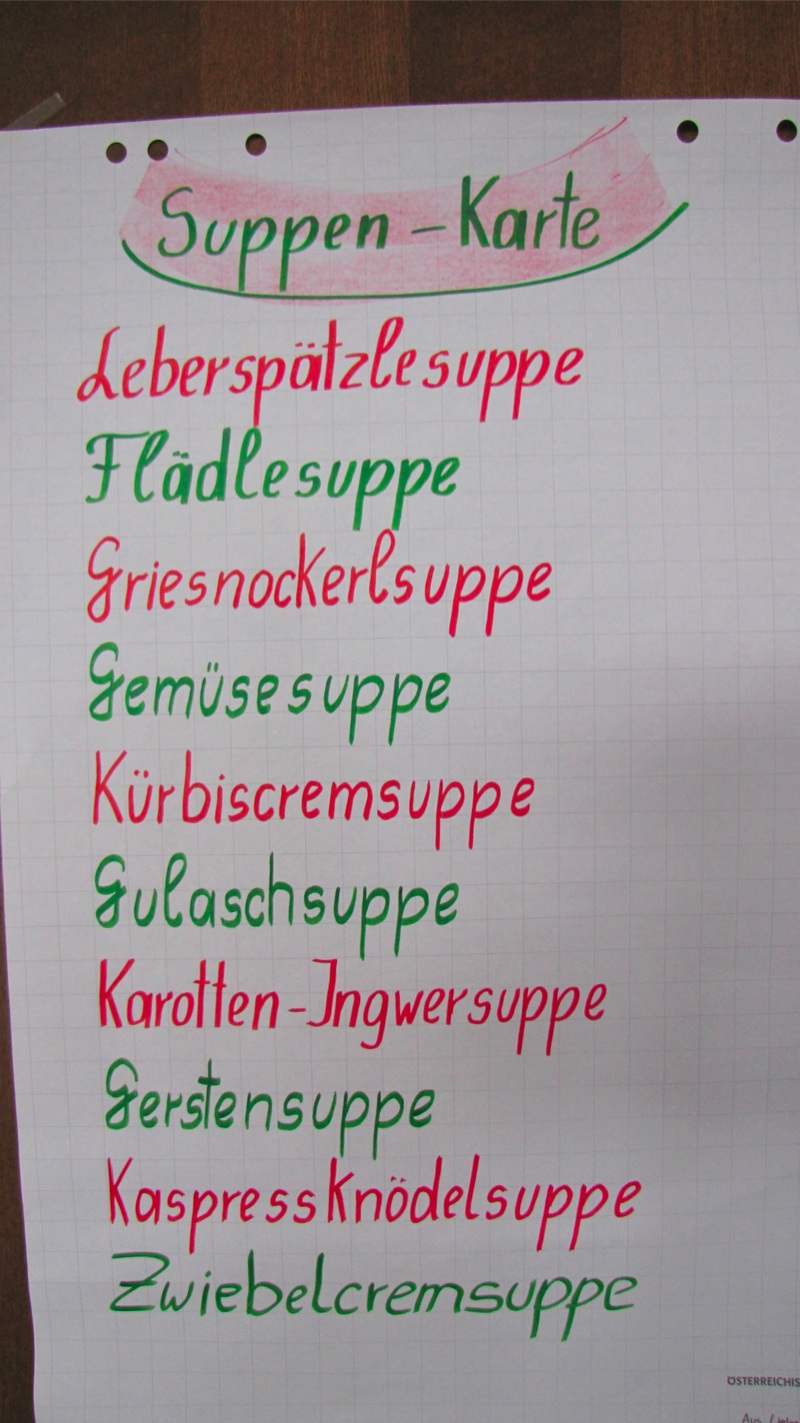 Suppen - Karte
Leberspätzlesuppe
Flädlesuppe
Griesnockerlsuppe
Gemüsesuppe
Kürbiscremsuppe
Gulaschsuppe
Karotten-Ingwersuppe
Gerstensuppe
Kaspressknödelsuppe
Zwiebelcremsuppe
ÖSTERREICHIS
Aus